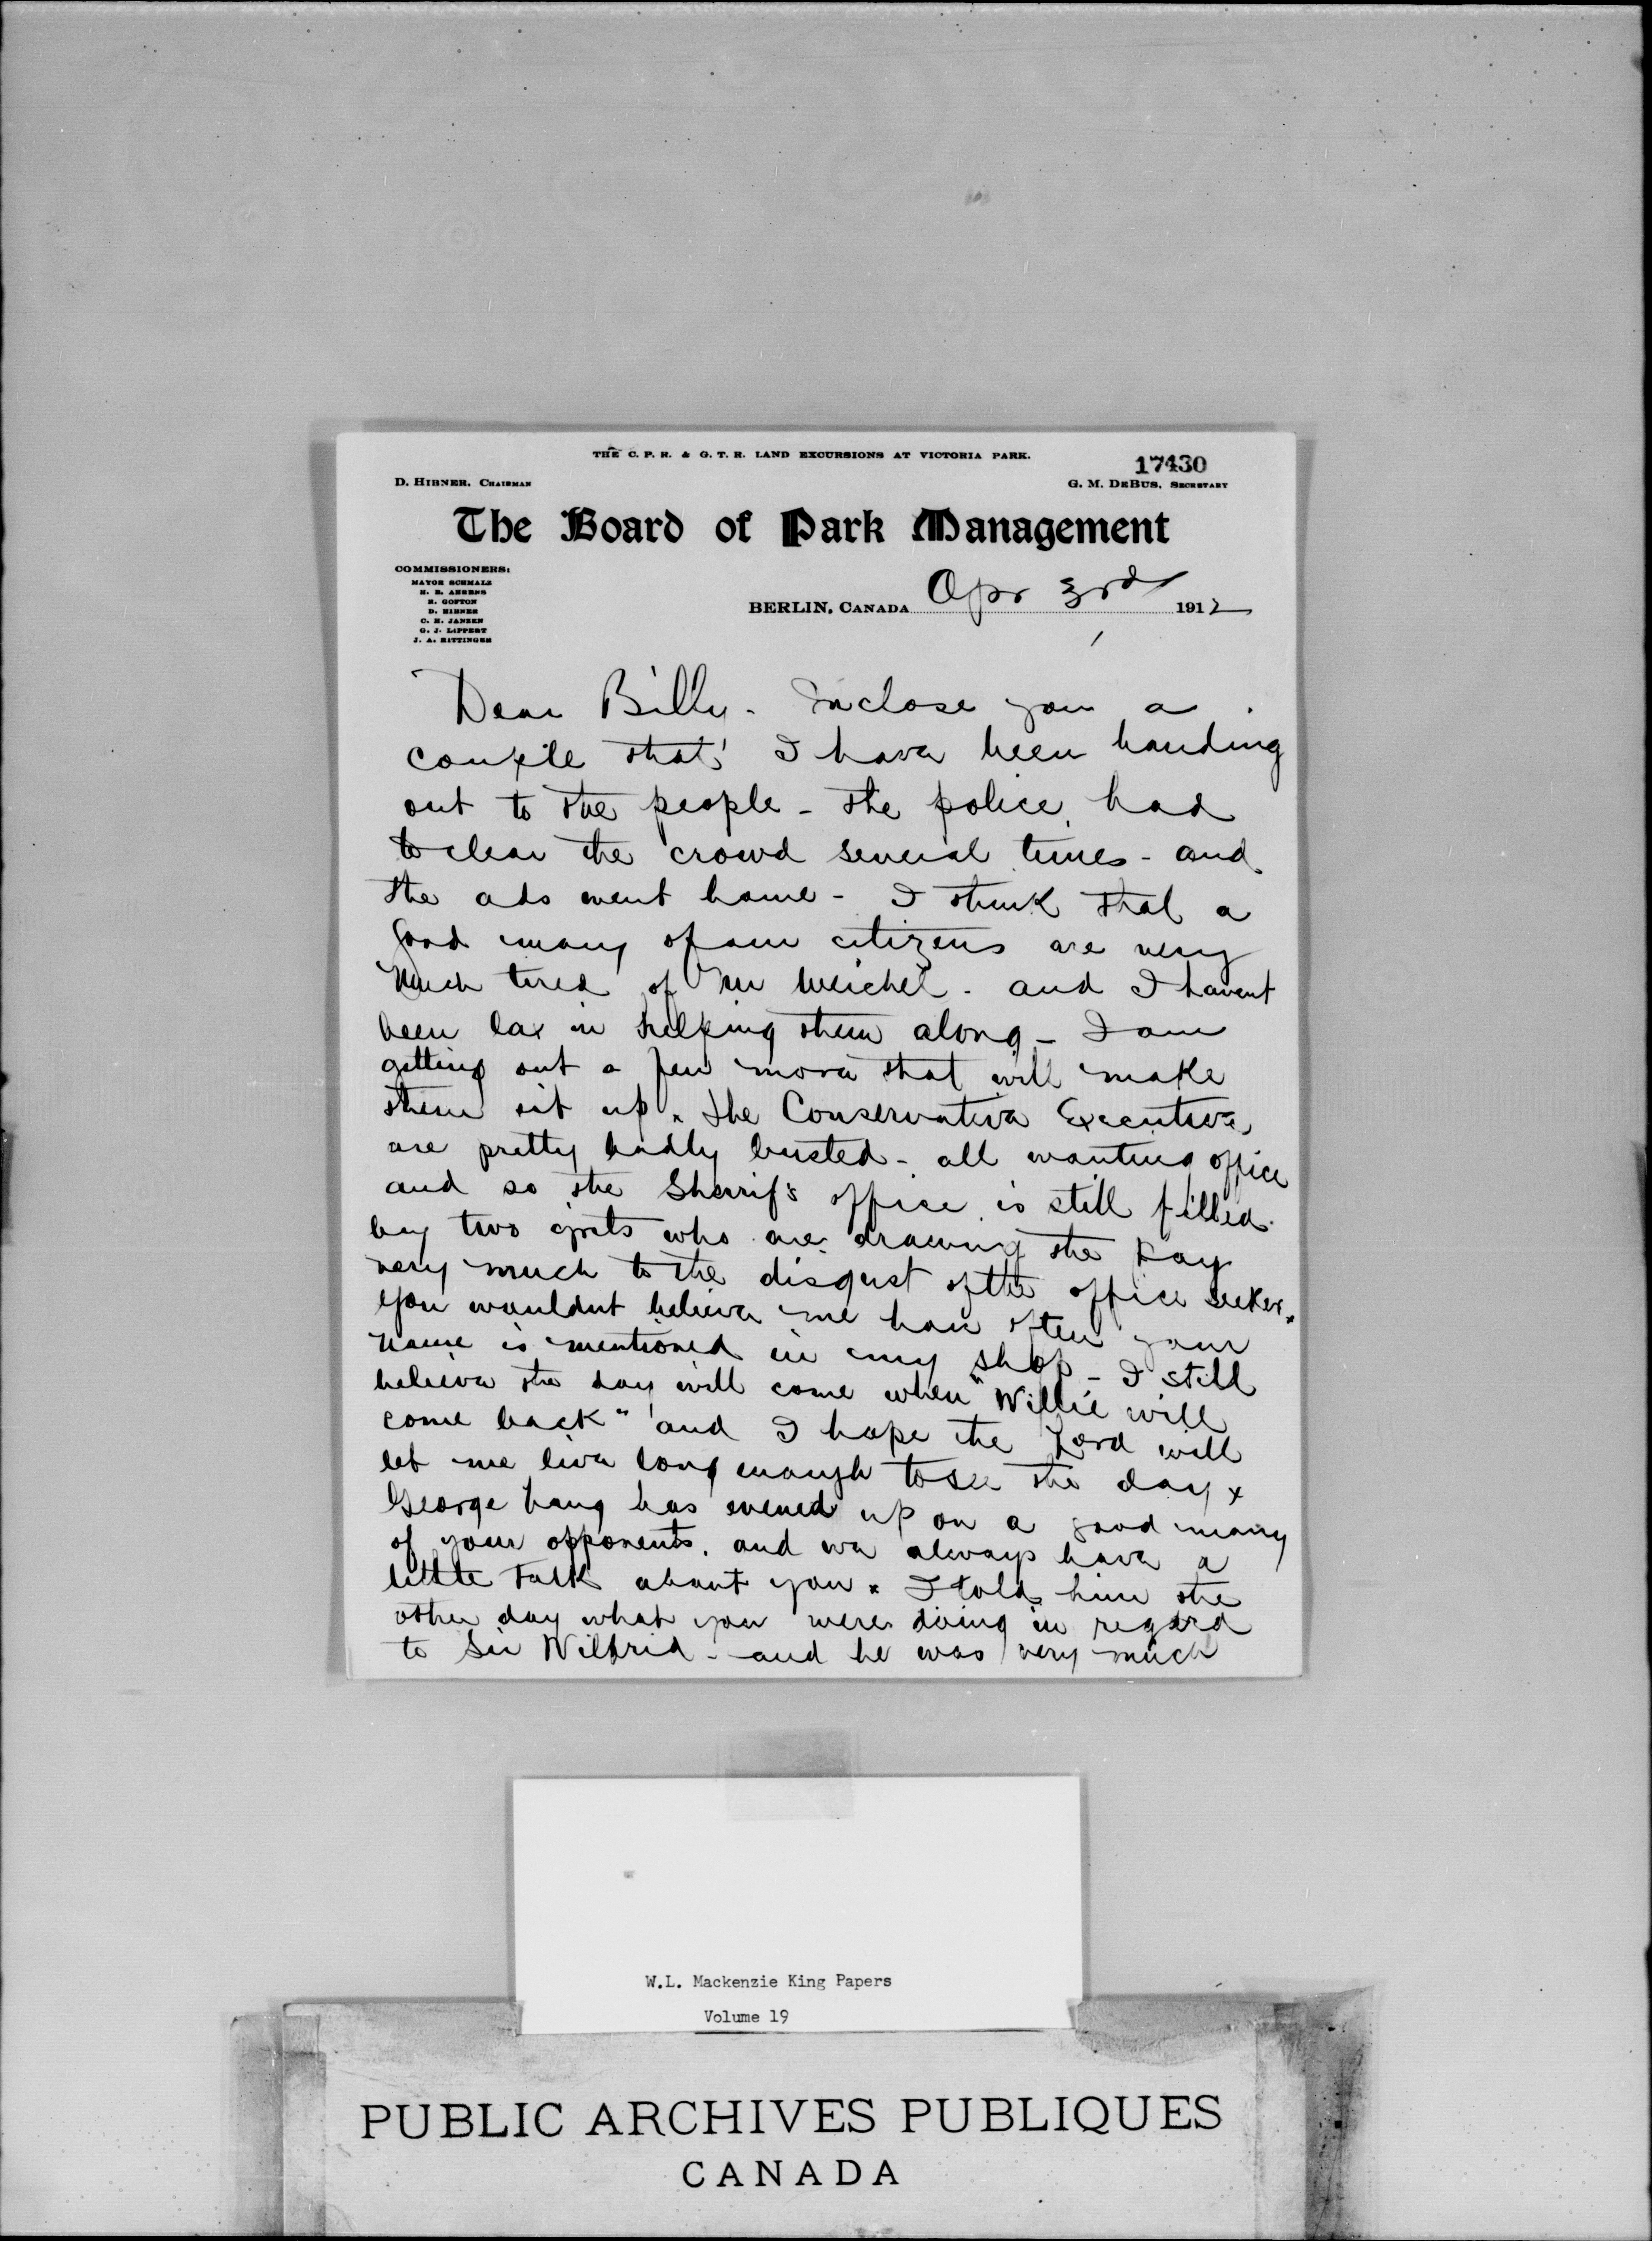 THE C. P. R. & G. T. R. LAND EXCURSIONS AT VICTORIA PARK.
17430
D. HIBNER, CHAIRMAN
G. M. DEBUS, SECRETARY
The Board of Park Management
COMMISSIONERS:
MAYOR SCHMALZ
H. B. AHRENS
R. GOFTON
D. HIBNER
C. H. JANZEN
G. J. LIPPERT
J. A. RITTINGER
BERLIN, CANADA Apr 3rd 1912
Dear Billy - Inclose you a
couple that I have been handing
out to the people - the police had
to clear the crowd several times - and
the ads went home - I think that a
good many of our citizens are very
much tired of Mr Weichel - and I havent
been lax in helping them along - I am
getting out a few more that will make
them sit up x the Conservative Executive
are pretty badly busted - all wanting office
and so the Sherrif's office is still filled
by two grits who are drawing the pay
very much to the disgust of the office seeker x
You wouldnt believe me how often your
name is mentioned in my shop - I still
believe the day will come when "Willie will
come back" and I hope the Lord will
let me live long enough to see the day x
George hang has evened up on a good many
of your opponents, and we always have a
little talk about you x I told him the
other day what you were doing in regard
to Sir Wilfrid - and he was very much
W.L. Mackenzie King Papers
Volume 19
PUBLIC ARCHIVES PUBLIQUES
CANADA